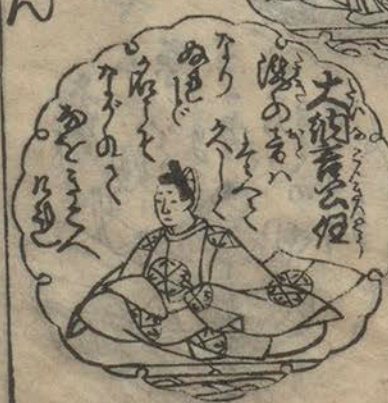 大納言公任
瀧の音ハ
たえて
久しく
なり
ぬれど
名こそ
ながれて
なをきこへ
けれ
ん